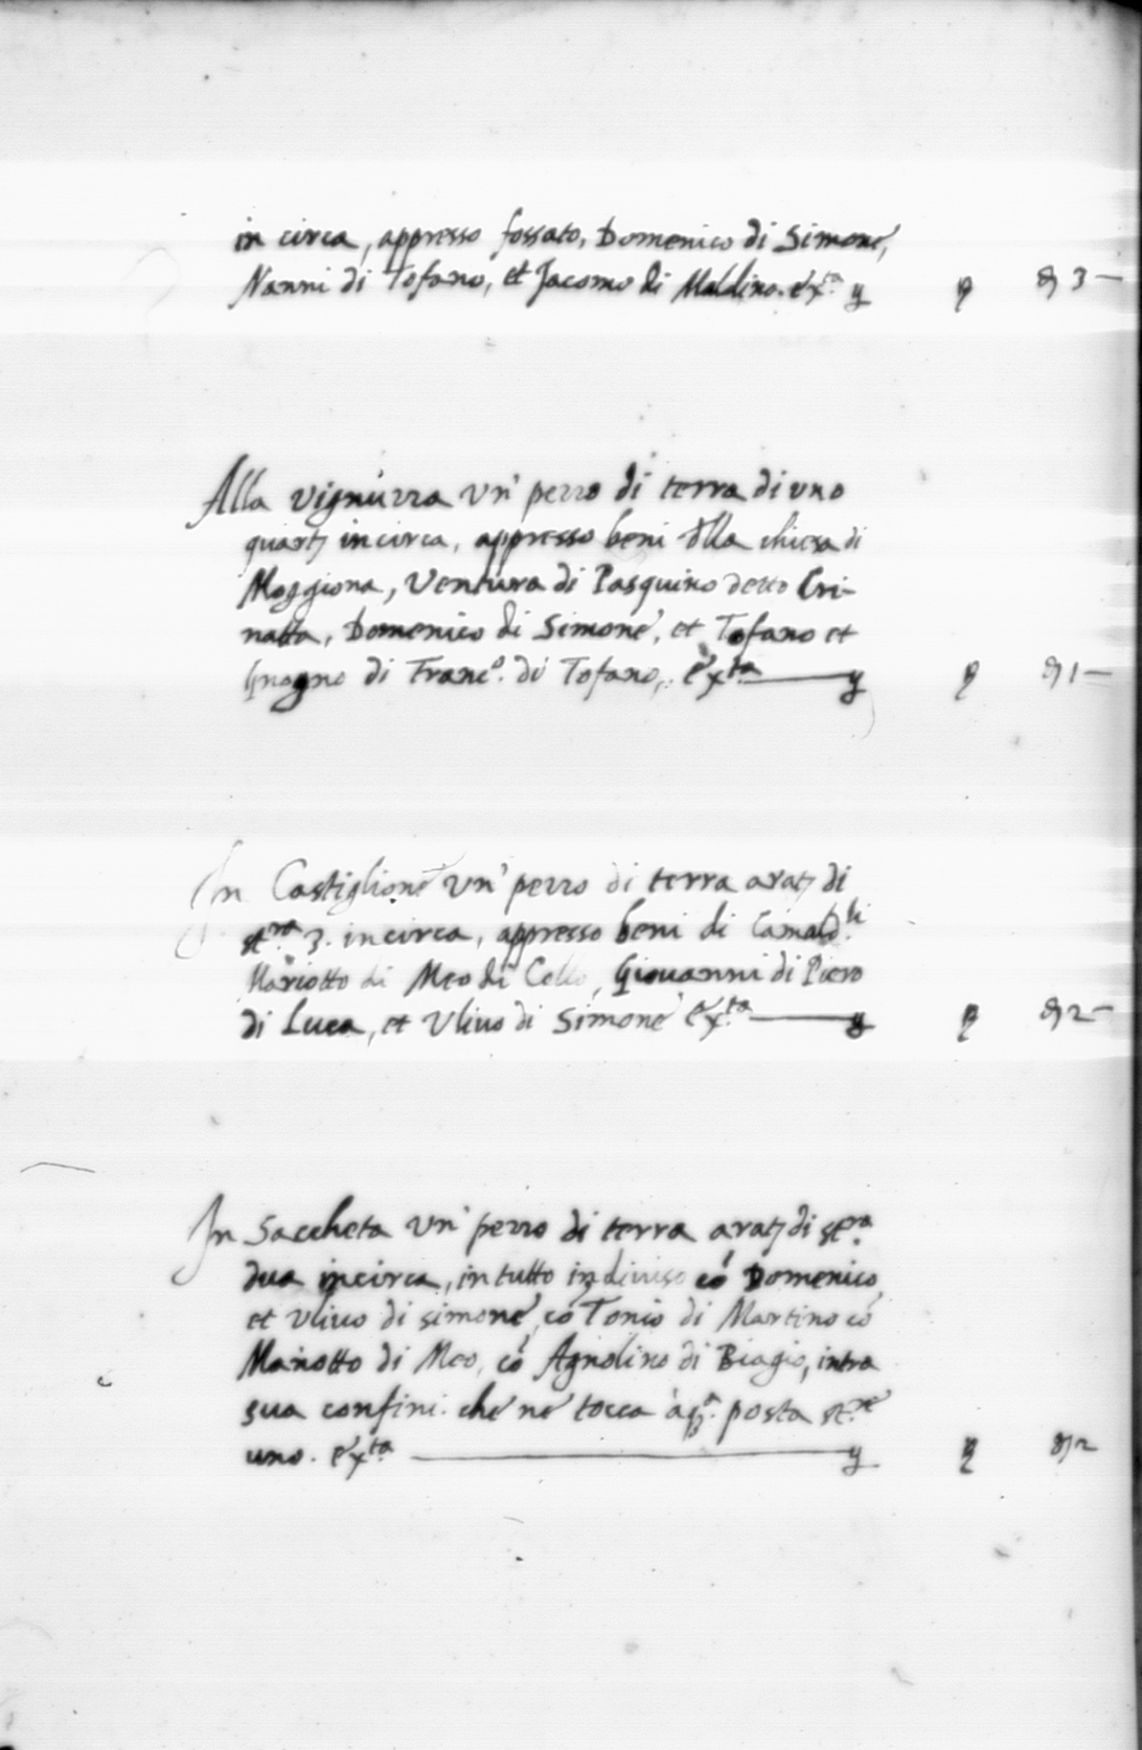 in circa, appresso fossato, Domenico di Simone,
Nanni di Tofano, et Jacomo di Maldino. exta 3
Alla vignuzza un' pezzo di terra di uno
quarto incirca, appresso beni della chiesa di
Moggiona, Ventura di Pasquino detto Cri-
natta, Domenico di Simone, et Tofano et
di Franco. di Tofano, exta 1
In Castiglione un' pezzo di terra arat. di
stra 3. incirca, appresso beni di Camaldli
Mariotto di Meo di Cello, Giovanni di Piero
di Luca, et Ulivo di Simone exta 2
In Saccheta un' pezzo di terra arat. di stra
dua incirca, in tutto indiviso có Domenico
et Ulivo di simone, có Tonio di Martino có
Mariotto di Meo, có Agnolino di Biagio, intra
sua confini. che ne tocca à qa. posta stre
uno. exta 2